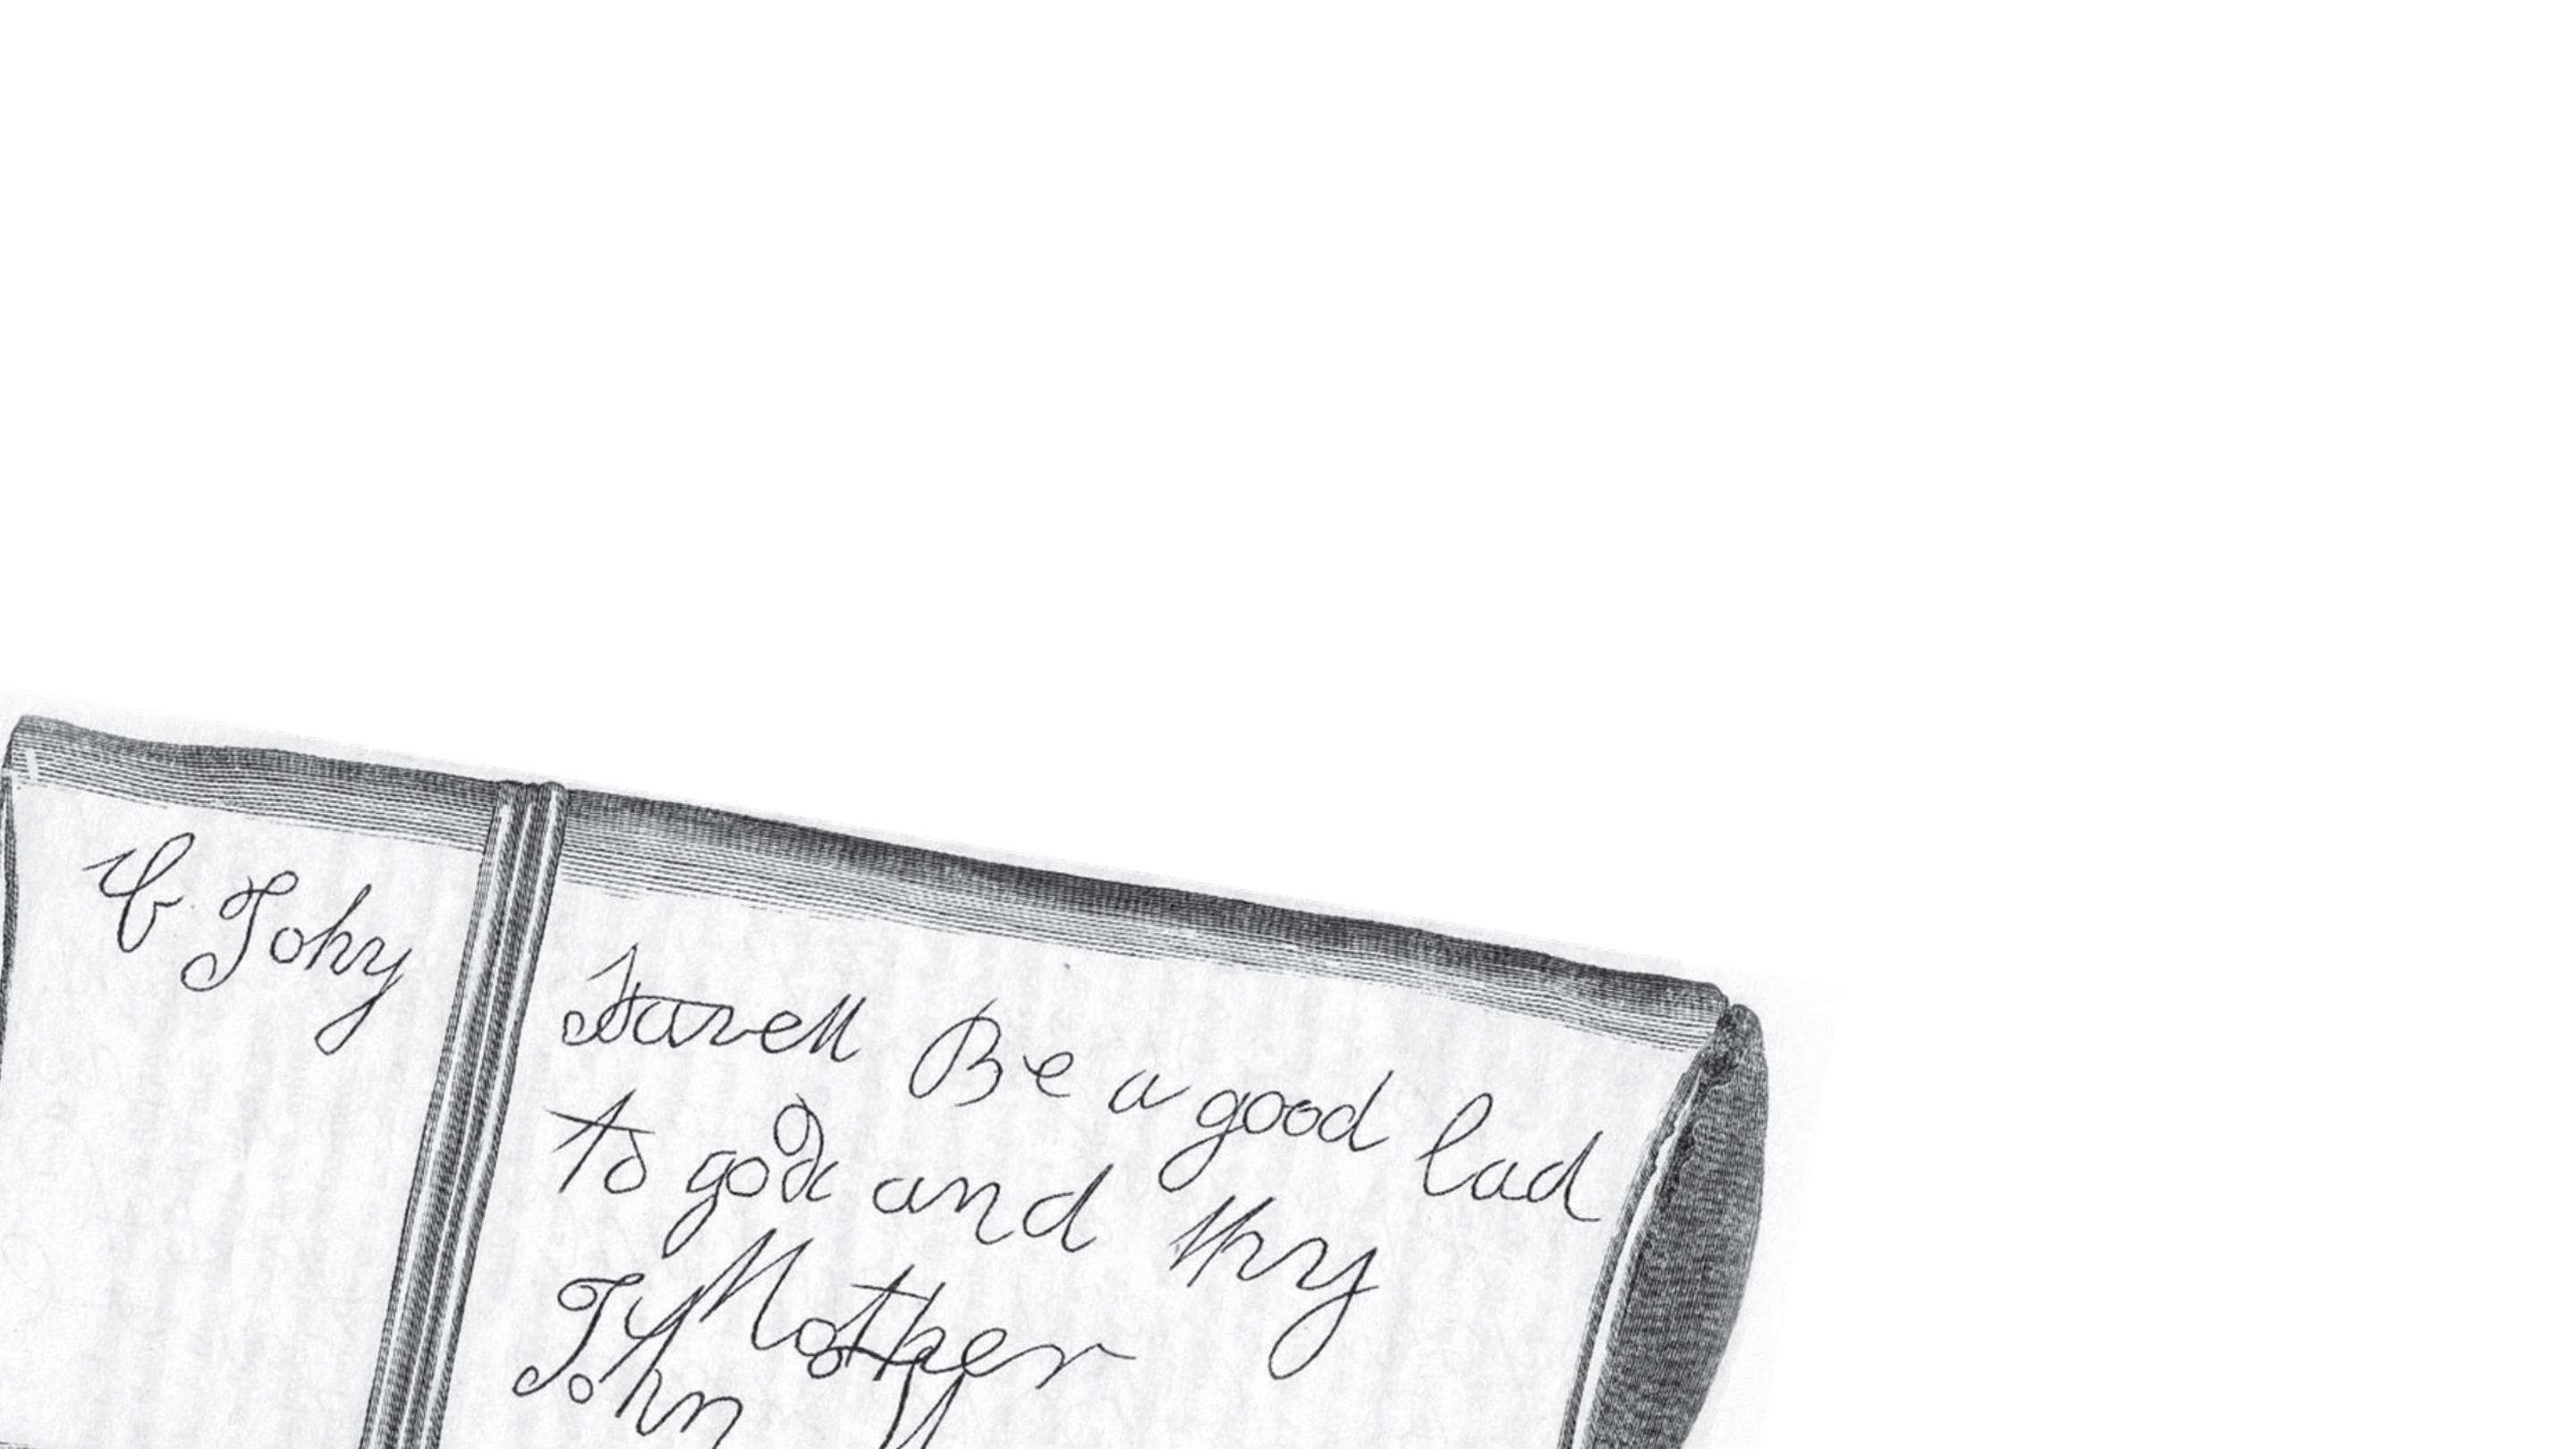 Johy
Farell Be a good lad
to god and thy
Mother
John